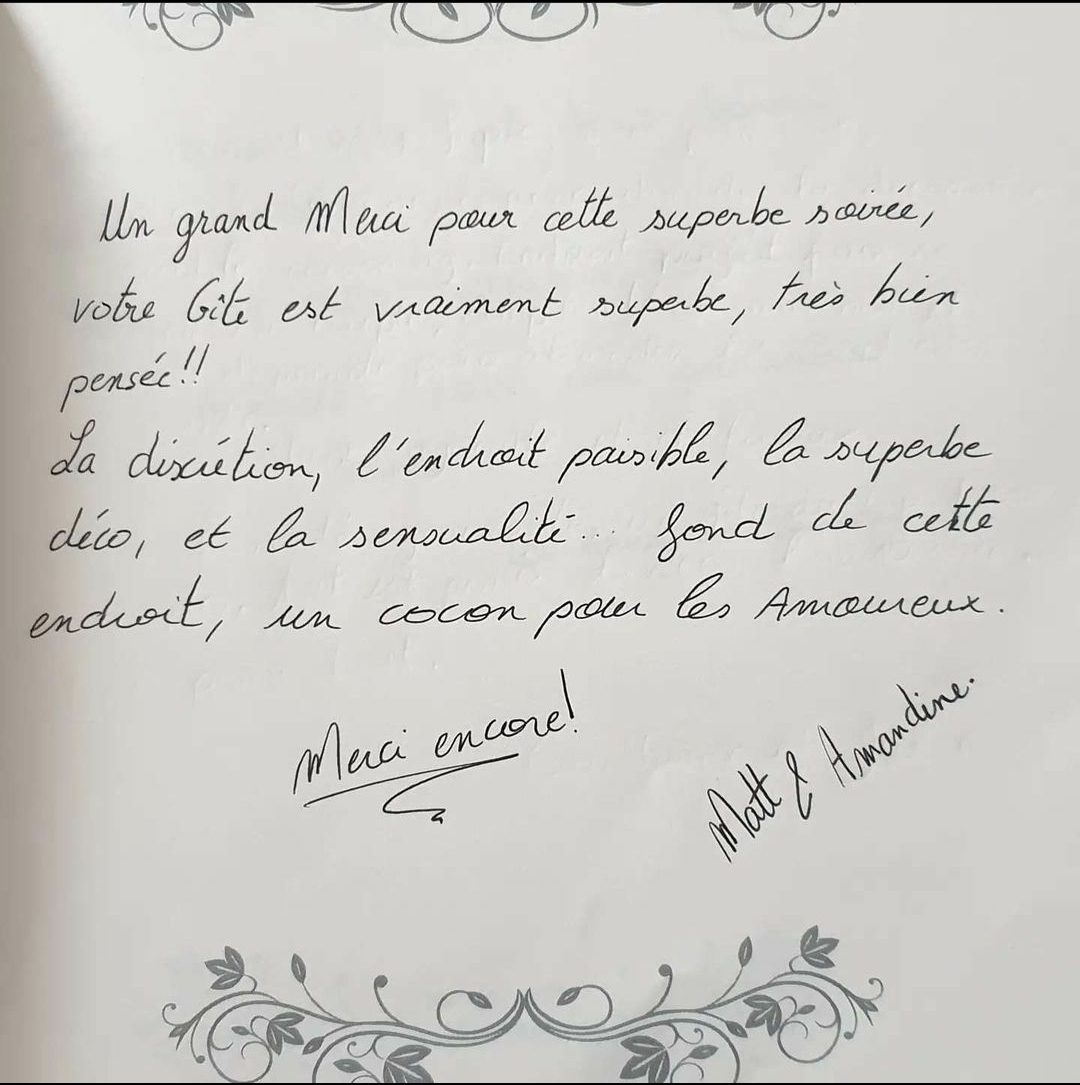 Un grand Merci pour cette superbe soirée,
votre Gîte est vraiment superbe, très bien
pensée!!
La discrétion, l'endroit paisible, la superbe
déco, et la sensualité... fond de cette
endroit, un cocon pour les Amoureux.
Merci encore!
Matt & Amandine.